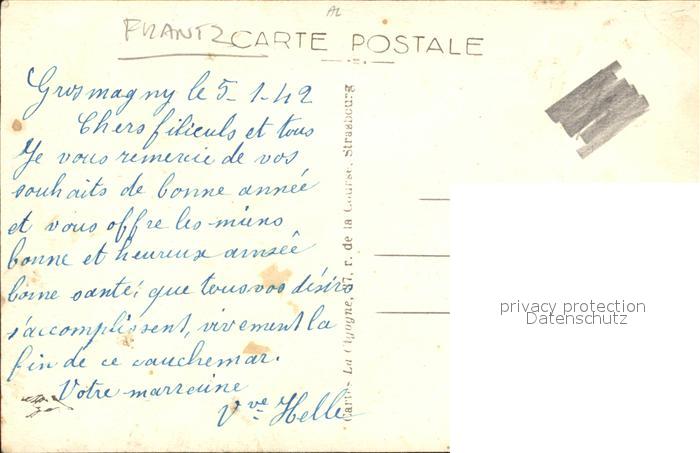 AL
FRANTZ
CARTE POSTALE
Grosmagny le 5-1-42
Chers filleuls et tous
Je vous remercie de vos
souhaits de bonne année
et vous offre les miens
bonne et heureux année
bonne santé, que tous vos désirs
s'accomplissent, vivement la
fin de ce cauchemar.
Votre marraine
Vve Helle
Cartes La Cigogne, 37, r. de la Course, Strasbourg
privacy protection
Datenschutz